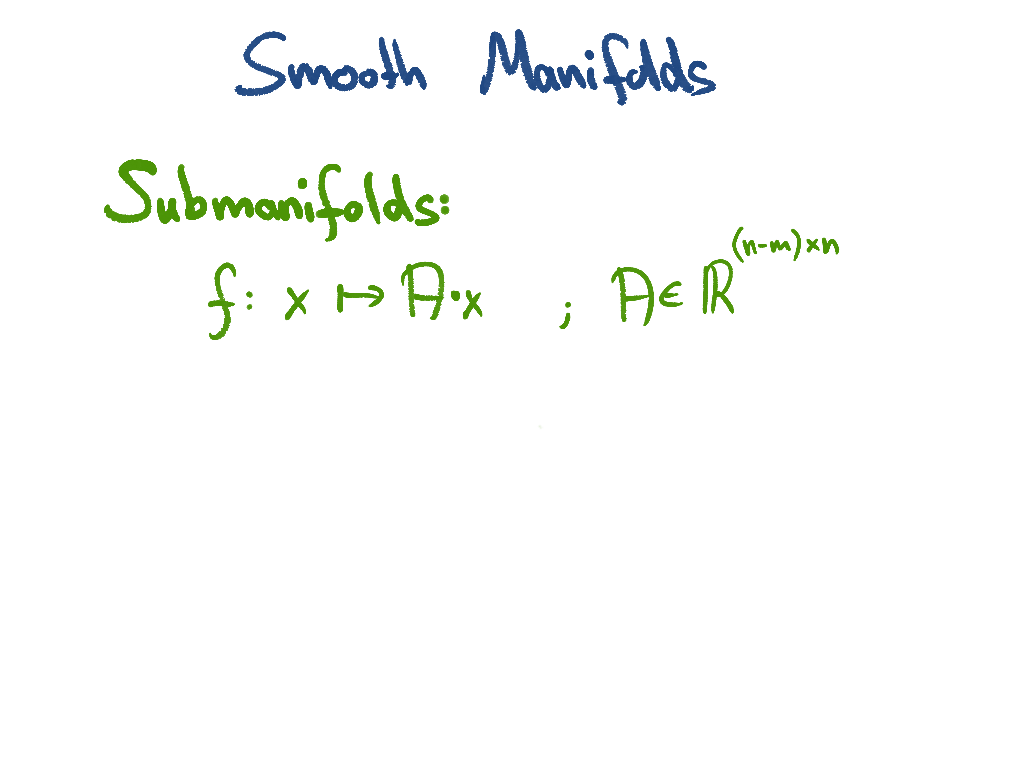 Smooth Manifolds
Submanifolds:
f: x ↦ A·x ; A ∈ ℝ^{(n-m)×n}